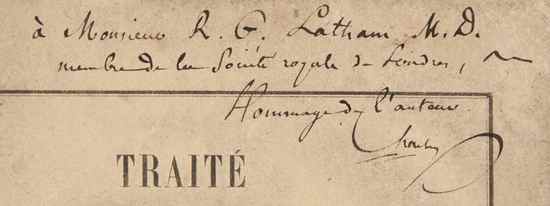 à Monsieur R. G. Latham M.D.
membre de la Société royale de Londres,
Hommage de l'auteur
TRAITÉ